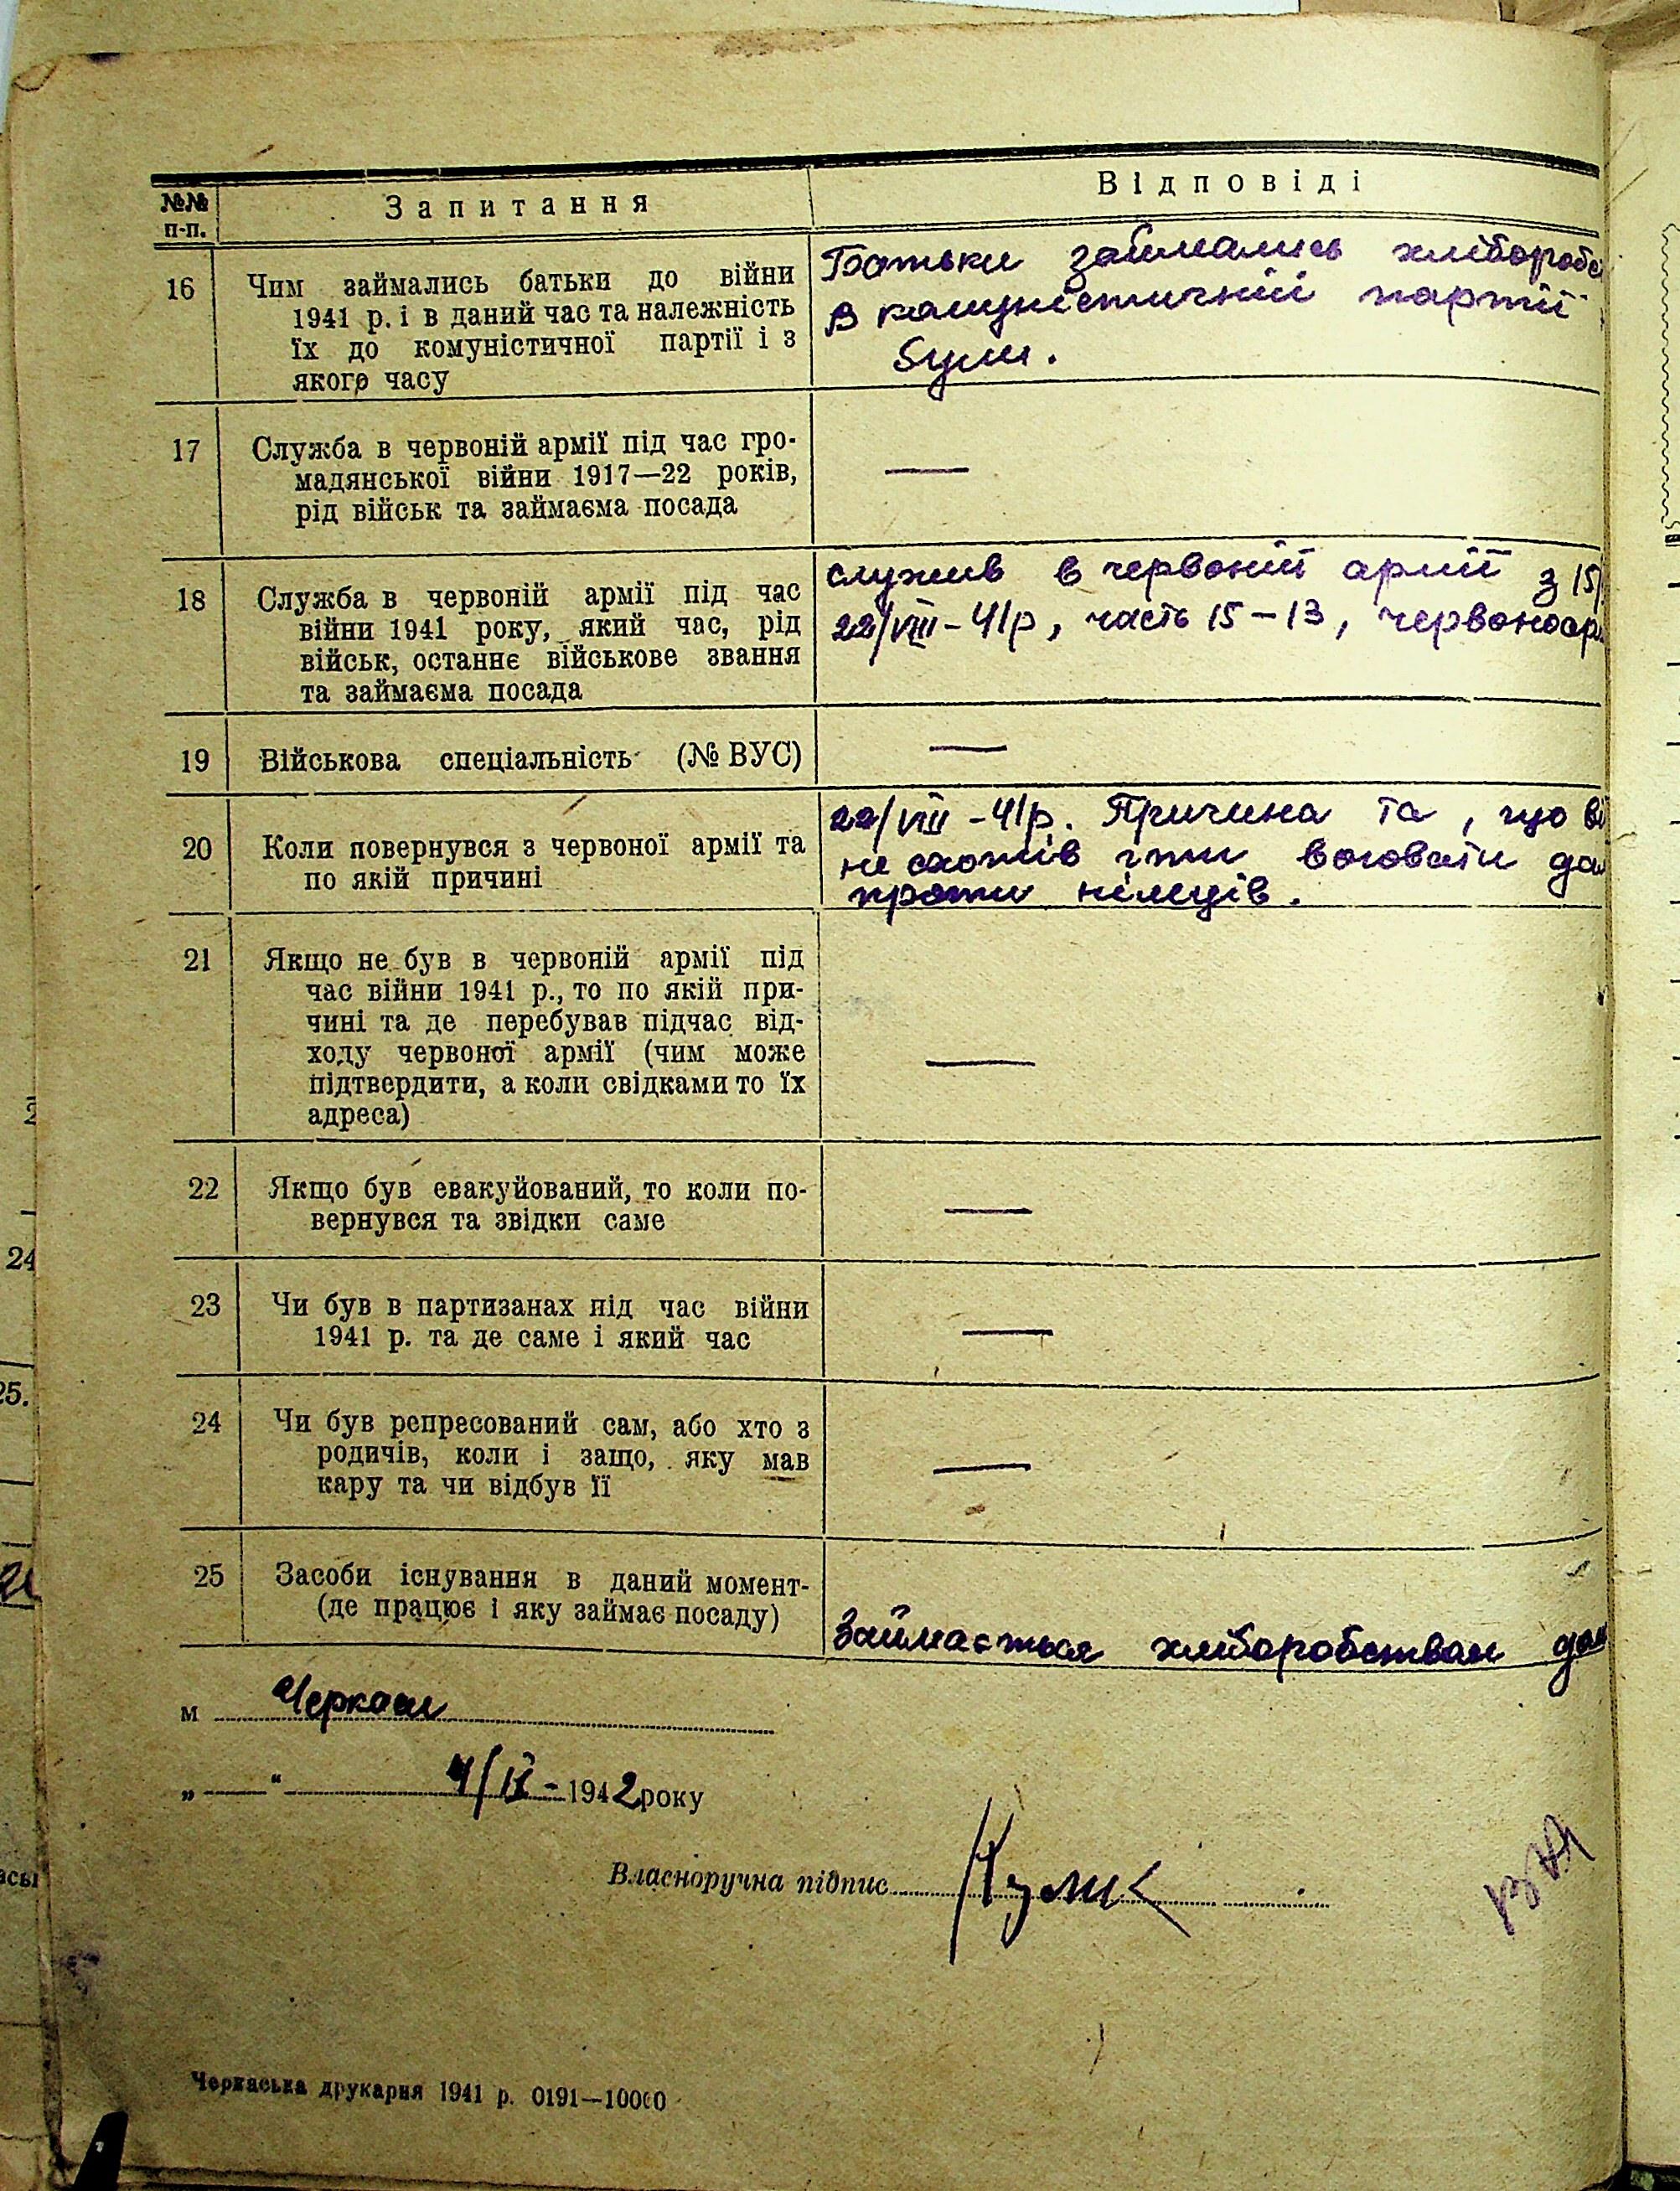 №№ п-п.
Запитання
Відповіді
16
Чим займались батьки до війни
1941 р. і в даний час та належність
їх до комуністичної партії і з
якого часу
Батьки займались хлібороб
в комуністичній партії
були.
17
Служба в червоній армії під час гро-
мадянської війни 1917—22 років,
рід військ та займаєма посада
—
18
Служба в червоній армії під час
війни 1941 року, який час, рід
військ, останнє військове звання
та займаєма посада
служив в червоній армії з 15/
22/VIII-41р, часть 15-13, червоноар
19
Військова спеціальність (№ ВУС)
—
20
Коли повернувся з червоної армії та
по якій причині
22/VIII-41р. Причина та, що ві
не схотів іти воювати да
проти німців.
21
Якщо не був в червоній армії під
час війни 1941 р., то по якій при-
чині та де перебував підчас від-
ходу червоної армії (чим може
підтвердити, а коли свідками то їх
адреса)
—
22
Якщо був евакуйований, то коли по-
вернувся та звідки саме
—
23
Чи був в партизанах під час війни
1941 р. та де саме і який час
—
24
Чи був репресований сам, або хто з
родичів, коли і защо, яку мав
кару та чи відбув її
—
25
Засоби існування в даний момент-
(де працює і яку займає посаду)
Займається хліборобством
м Черкаси
„—“ 4/IX-1942 року
Власноручна підпис
Черкаська друкарня 1941 р. 0191—10000
24
25.